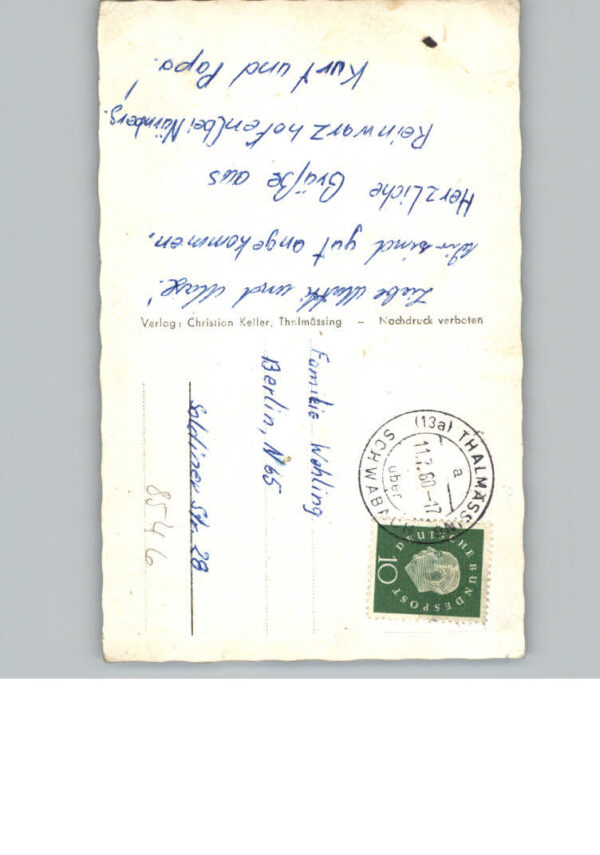 Liebe Mutti und Maxe!
Wir sind gut angekommen.
Herzliche Grüße aus
Reinwarzhofen (bei Nürnberg.)
Kurt und Papa!
Verlag: Christian Keller, Thalmässing – Nachdruck verboten
Familie Wehling
Berlin, N65
Soldiner Str. 28
8546
(13a) THALMÄSSING
a
11.7.60–17
über
SCHWABACH
DEUTSCHE BUNDESPOST
10